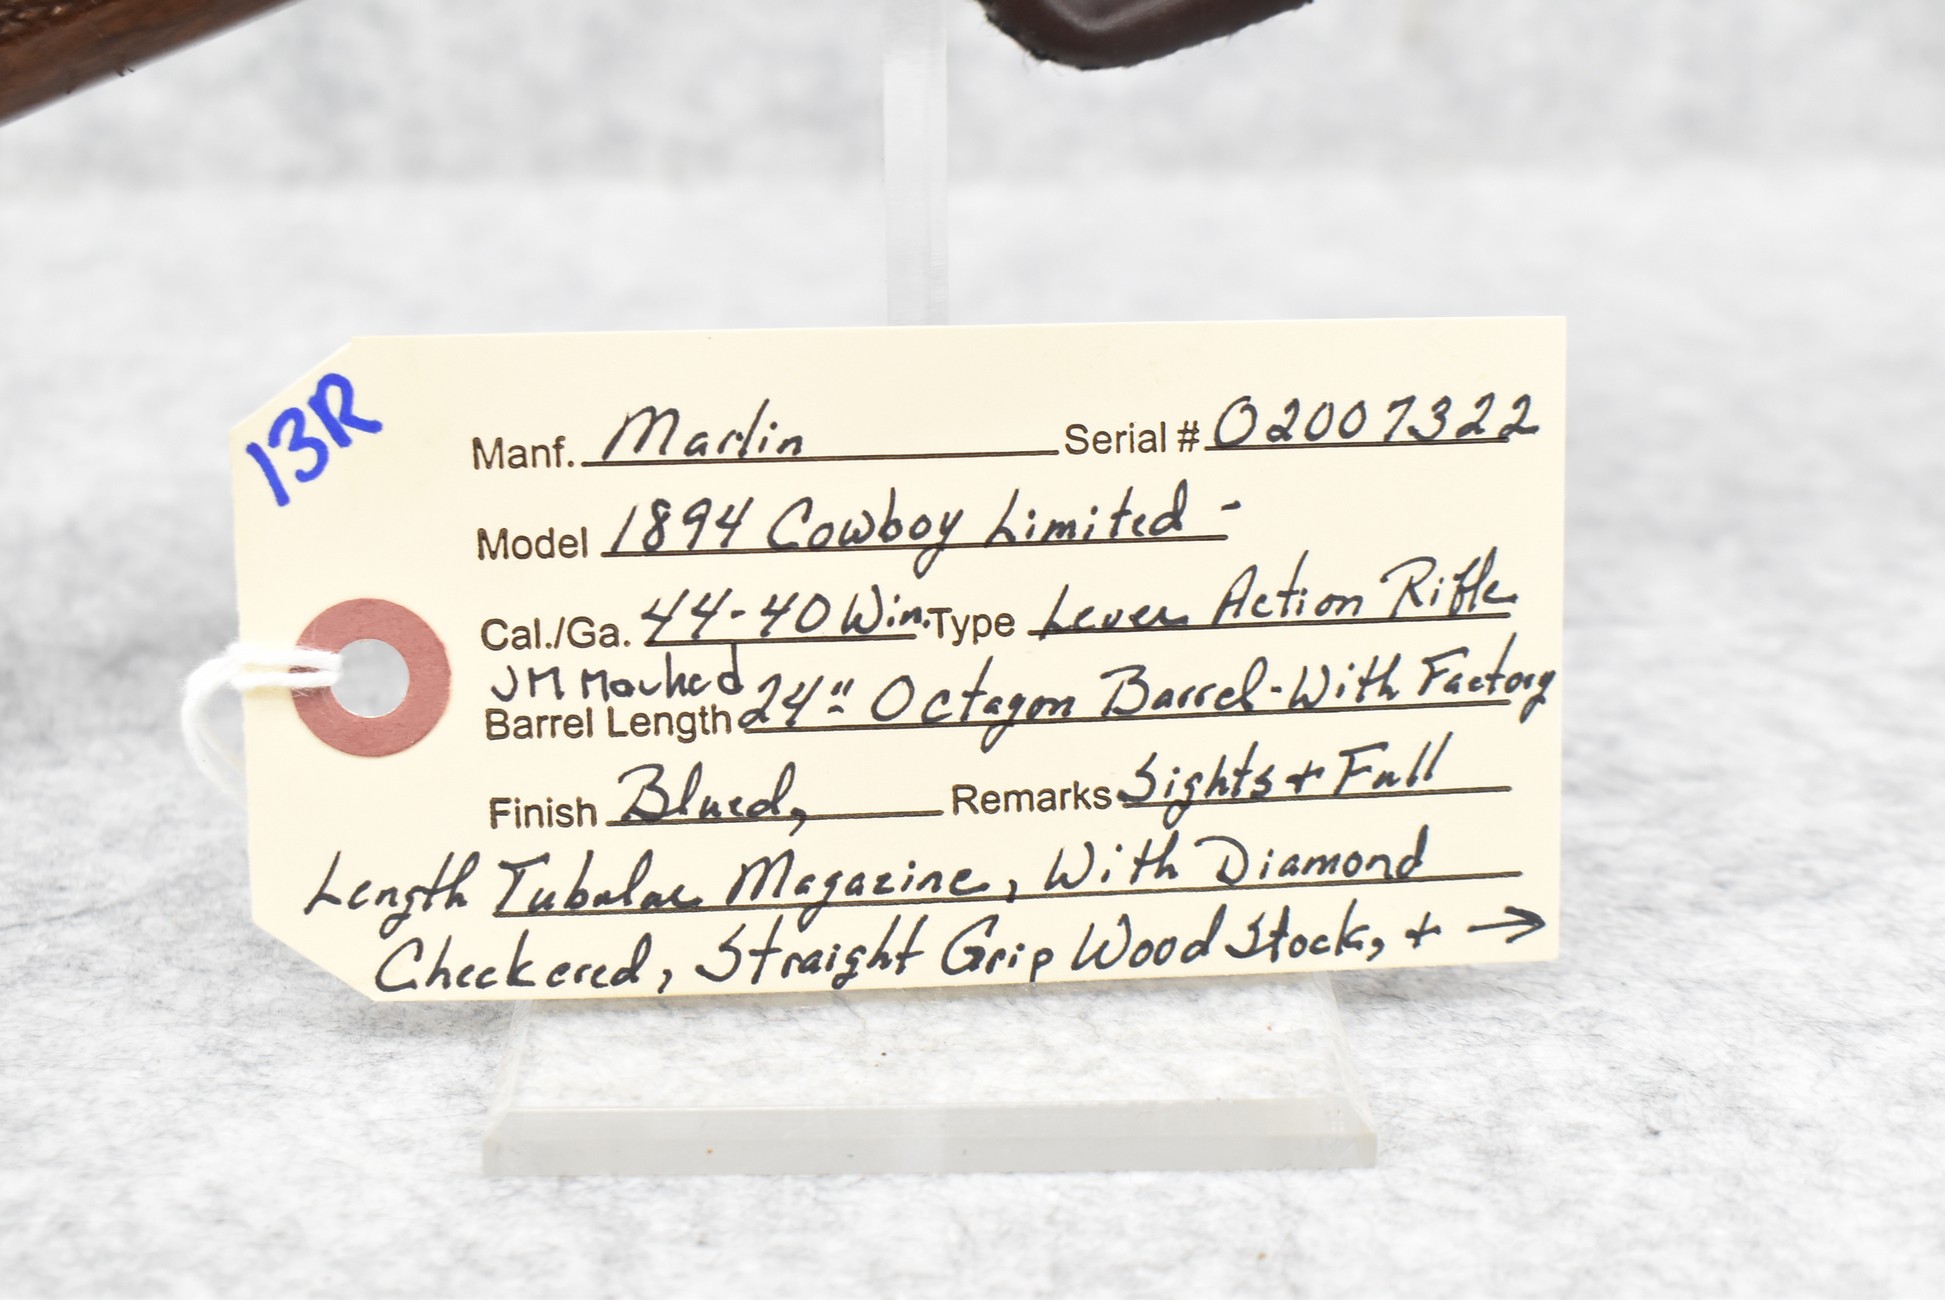 13R
Manf. Marlin Serial # 02007322
Model 1894 Cowboy Limited -
Cal./Ga. 44-40 Win. Type Lever Action Rifle
JM Marked
Barrel Length 24" Octagon Barrel - With Factory
Finish Blued, Remarks Sights + Full
Length Tubular Magazine, With Diamond
Checkered, Straight Grip Wood Stock, + →